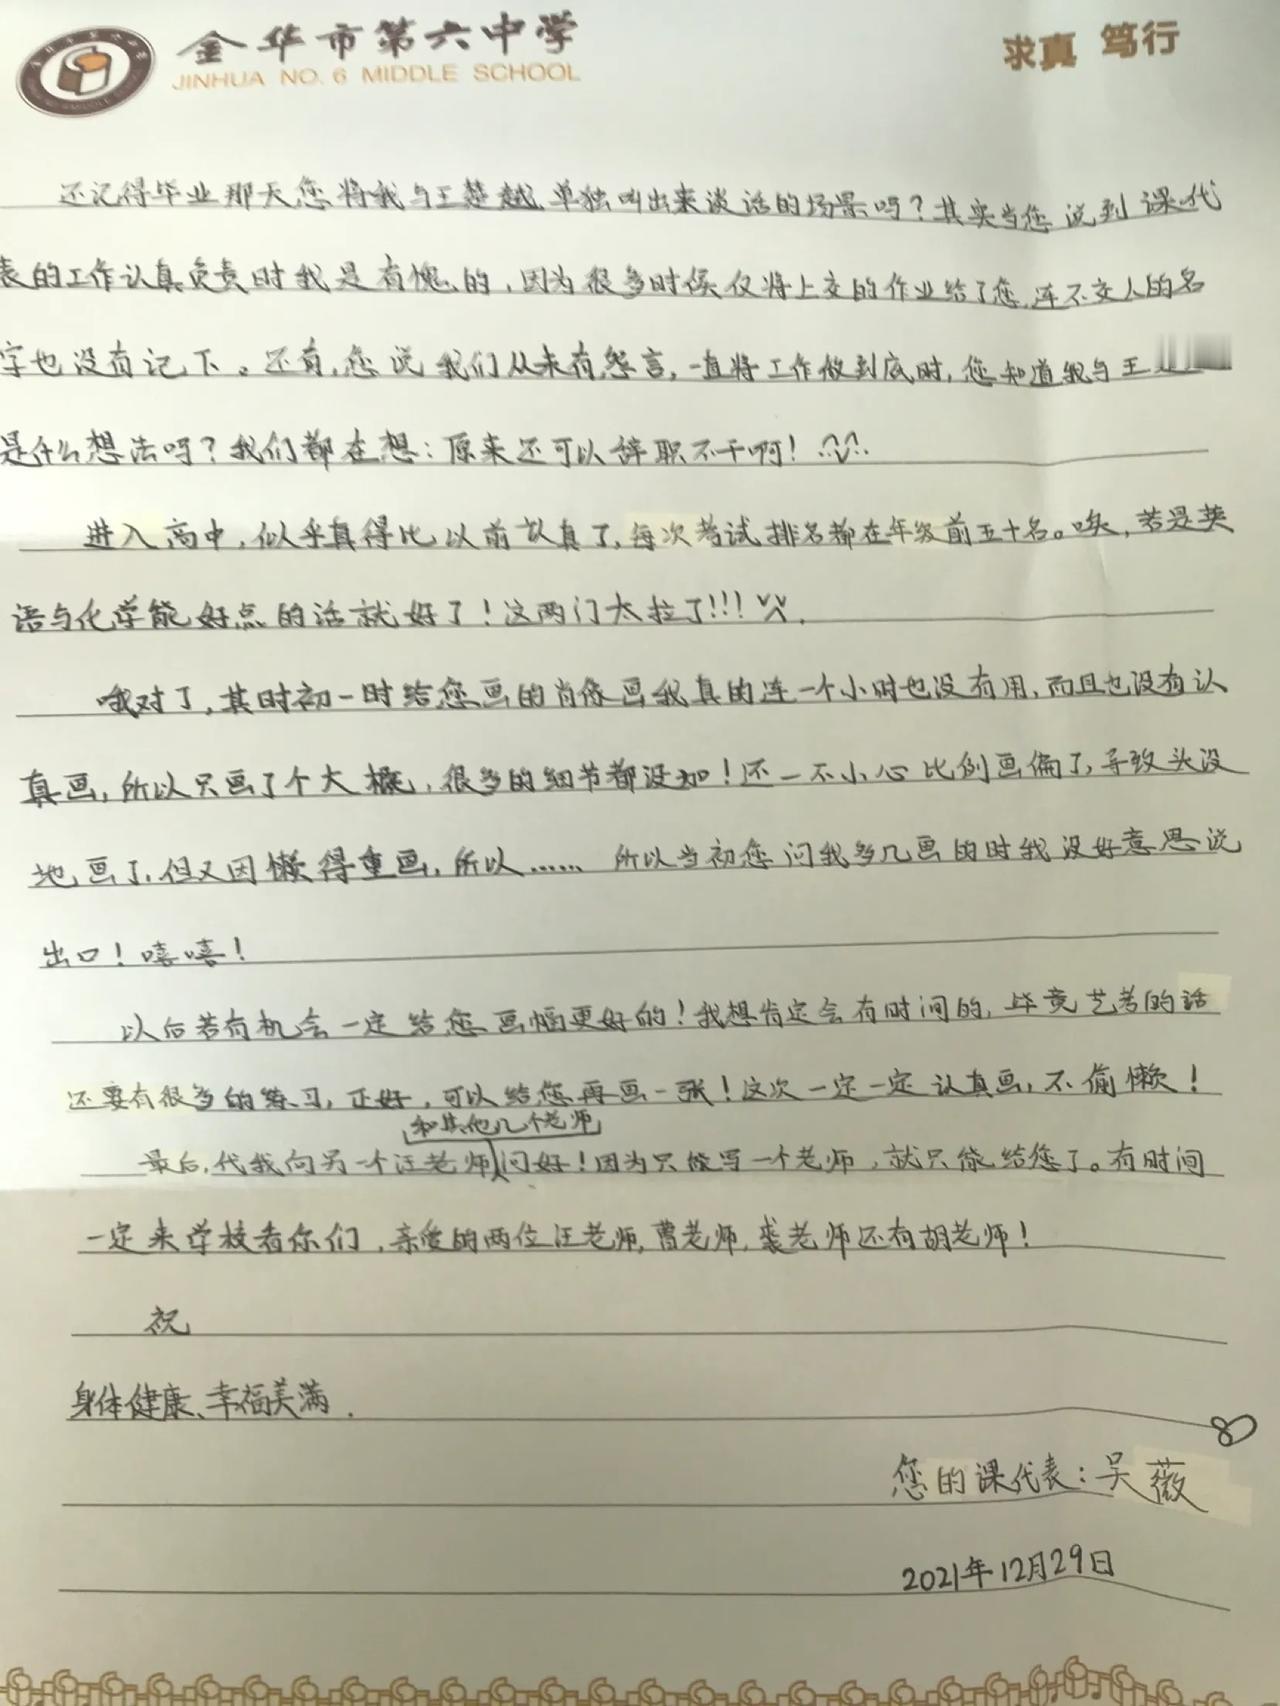 金华市第六中学
JINHUA NO. 6 MIDDLE SCHOOL
求真 笃行
还记得毕业那天您将我与王楚越单独叫出来谈话的场景吗？其实当您说到课代
表的工作认真负责时我是有愧的，因为很多时候仅将上交的作业给了您，连不交人的名
字也没有记下。还有，您说我们从未有怨言，一直将工作做到底时，您知道我与王
是什么想法吗？我们都在想：原来还可以辞职不干啊！
进入高中，似乎真得比以前认真了，每次考试排名都在年级前五十名。唉，若是英
语与化学能好点的话就好了！这两门太拉了!!!
哦对了，其时初一时给您画的肖像画我真的连一个小时也没有用，而且也没有认
真画，所以只画了个大概，很多的细节都没加！还一不小心比例画偏了，导致头没
地画了，但又因懒得重画，所以…… 所以当初您问我多几画的时我没好意思说
出口！嘻嘻！
以后若有机会一定给您画幅更好的！我想肯定会有时间的，毕竟艺考的话
还要有很多的练习，正好，可以给您再画一张！这次一定一定认真画，不偷懒！
和其他几个老师
最后，代我向另一个汪老师问好！因为只能写一个老师，就只能给您了。有时间
一定来学校看你们，亲爱的两位汪老师，曹老师，裘老师还有胡老师！
祝
身体健康、幸福美满．
您的课代表：吴薇
2021年12月29日